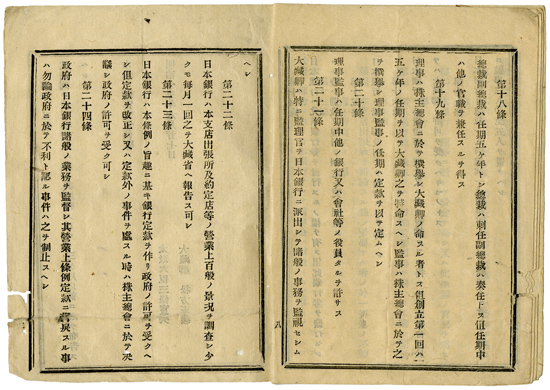 第十八條
總裁副總裁ハ任期五ケ年トシ總裁ハ勅任副總裁ハ奏任トス但任期中
ハ他ノ官職ヲ兼任スルヲ得ス
第十九條
理事ハ株主總會ニ於テ撰擧シ大藏卿ノ命スル者トス但創立第一回ハ
五ケ年ノ任期ヲ以テ大藏卿之ヲ特命スヘシ監事ハ株主總會ニ於テ之
ヲ撰擧シ理事監事ノ任期ハ定款ヲ以テ定ムヘシ
第二十條
理事監事ハ任期中他ノ銀行又ハ會社等ノ役員タルヲ許サス
第二十一條
大藏卿ハ特ニ監理官ヲ日本銀行ニ派出シテ諸般ノ事務ヲ監視セシム
八
ヘシ
第二十二條
日本銀行ハ本支店出張所及約定店等ノ營業上百般ノ景况ヲ調査シ少
クモ毎月一回之ヲ大藏省ヘ報告ス可シ
第二十三條
日本銀行ハ本條例ノ旨趣ニ基キ銀行定款ヲ作リ政府ノ許可ヲ受クヘ
シ但定款ヲ改正シ又ハ定款外ノ事件ヲ處スル時ハ株主總會ニ於テ决
議シ政府ノ許可ヲ受ク可シ
第二十四條
政府ハ日本銀行諸般ノ業務ヲ監督シ其營業上條例定款ニ背戻スル事
ハ勿論政府ニ於テ不利ト認ル事件ハ之ヲ制止スヘシ